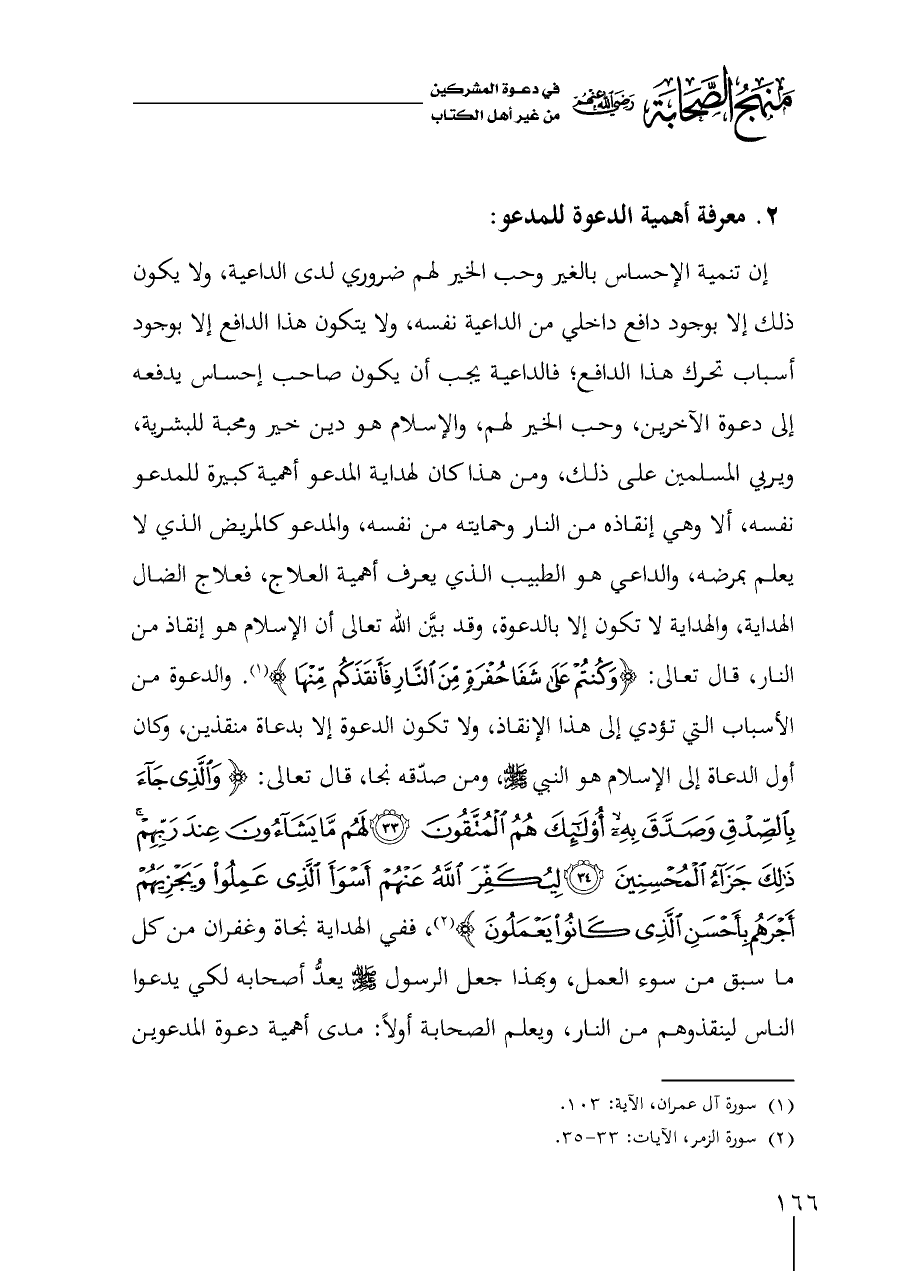 منهج الصحابة رضي الله عنهم
في دعوة المشركين
من غير أهل الكتاب
٢. معرفة أهمية الدعوة للمدعو:
إن تنمية الإحساس بالغير وحب الخير لهم ضروري لدى الداعية، ولا يكون
ذلك إلا بوجود دافع داخلي من الداعية نفسه، ولا يتكون هذا الدافع إلا بوجود
أسباب تحرك هذا الدافع؛ فالداعية يجب أن يكون صاحب إحساس يدفعه
إلى دعوة الآخرين، وحب الخير لهم، والإسلام هو دين خير ومحبة للبشرية،
ويربي المسلمين على ذلك، ومن هذا كان لهداية المدعو أهمية كبيرة للمدعو
نفسه، ألا وهي إنقاذه من النار وحمايته من نفسه، والمدعو كالمريض الذي لا
يعلم بمرضه، والداعي هو الطبيب الذي يعرف أهمية العلاج، فعلاج الضال
الهداية، والهداية لا تكون إلا بالدعوة، وقد بيَّن الله تعالى أن الإسلام هو إنقاذ من
النار، قال تعالى: ﴿وَكُنتُمْ عَلَىٰ شَفَا حُفْرَةٍ مِّنَ ٱلنَّارِ فَأَنقَذَكُم مِّنْهَا ﴾(١). والدعوة من
الأسباب التي تؤدي إلى هذا الإنقاذ، ولا تكون الدعوة إلا بدعاة منقذين، وكان
أول الدعاة إلى الإسلام هو النبي ﷺ، ومن صدّقه نجا، قال تعالى: ﴿ وَٱلَّذِى جَآءَ
بِٱلصِّدْقِ وَصَدَّقَ بِهِۦٓ أُو۟لَٰٓئِكَ هُمُ ٱلْمُتَّقُونَ ٣٣ لَهُم مَّا يَشَآءُونَ عِندَ رَبِّهِمْ ۚ
ذَٰلِكَ جَزَآءُ ٱلْمُحْسِنِينَ ٣٤ لِيُكَفِّرَ ٱللَّهُ عَنْهُمْ أَسْوَأَ ٱلَّذِى عَمِلُوا۟ وَيَجْزِيَهُمْ
أَجْرَهُم بِأَحْسَنِ ٱلَّذِى كَانُوا۟ يَعْمَلُونَ ﴾(٢)، ففي الهداية نجاة وغفران من كل
ما سبق من سوء العمل، وبهذا جعل الرسول ﷺ يعدُّ أصحابه لكي يدعوا
الناس لينقذوهم من النار، ويعلم الصحابة أولاً: مدى أهمية دعوة المدعوين
(١) سورة آل عمران، الآية: ١٠٣.
(٢) سورة الزمر، الآيات: ٣٣-٣٥.
١٦٦